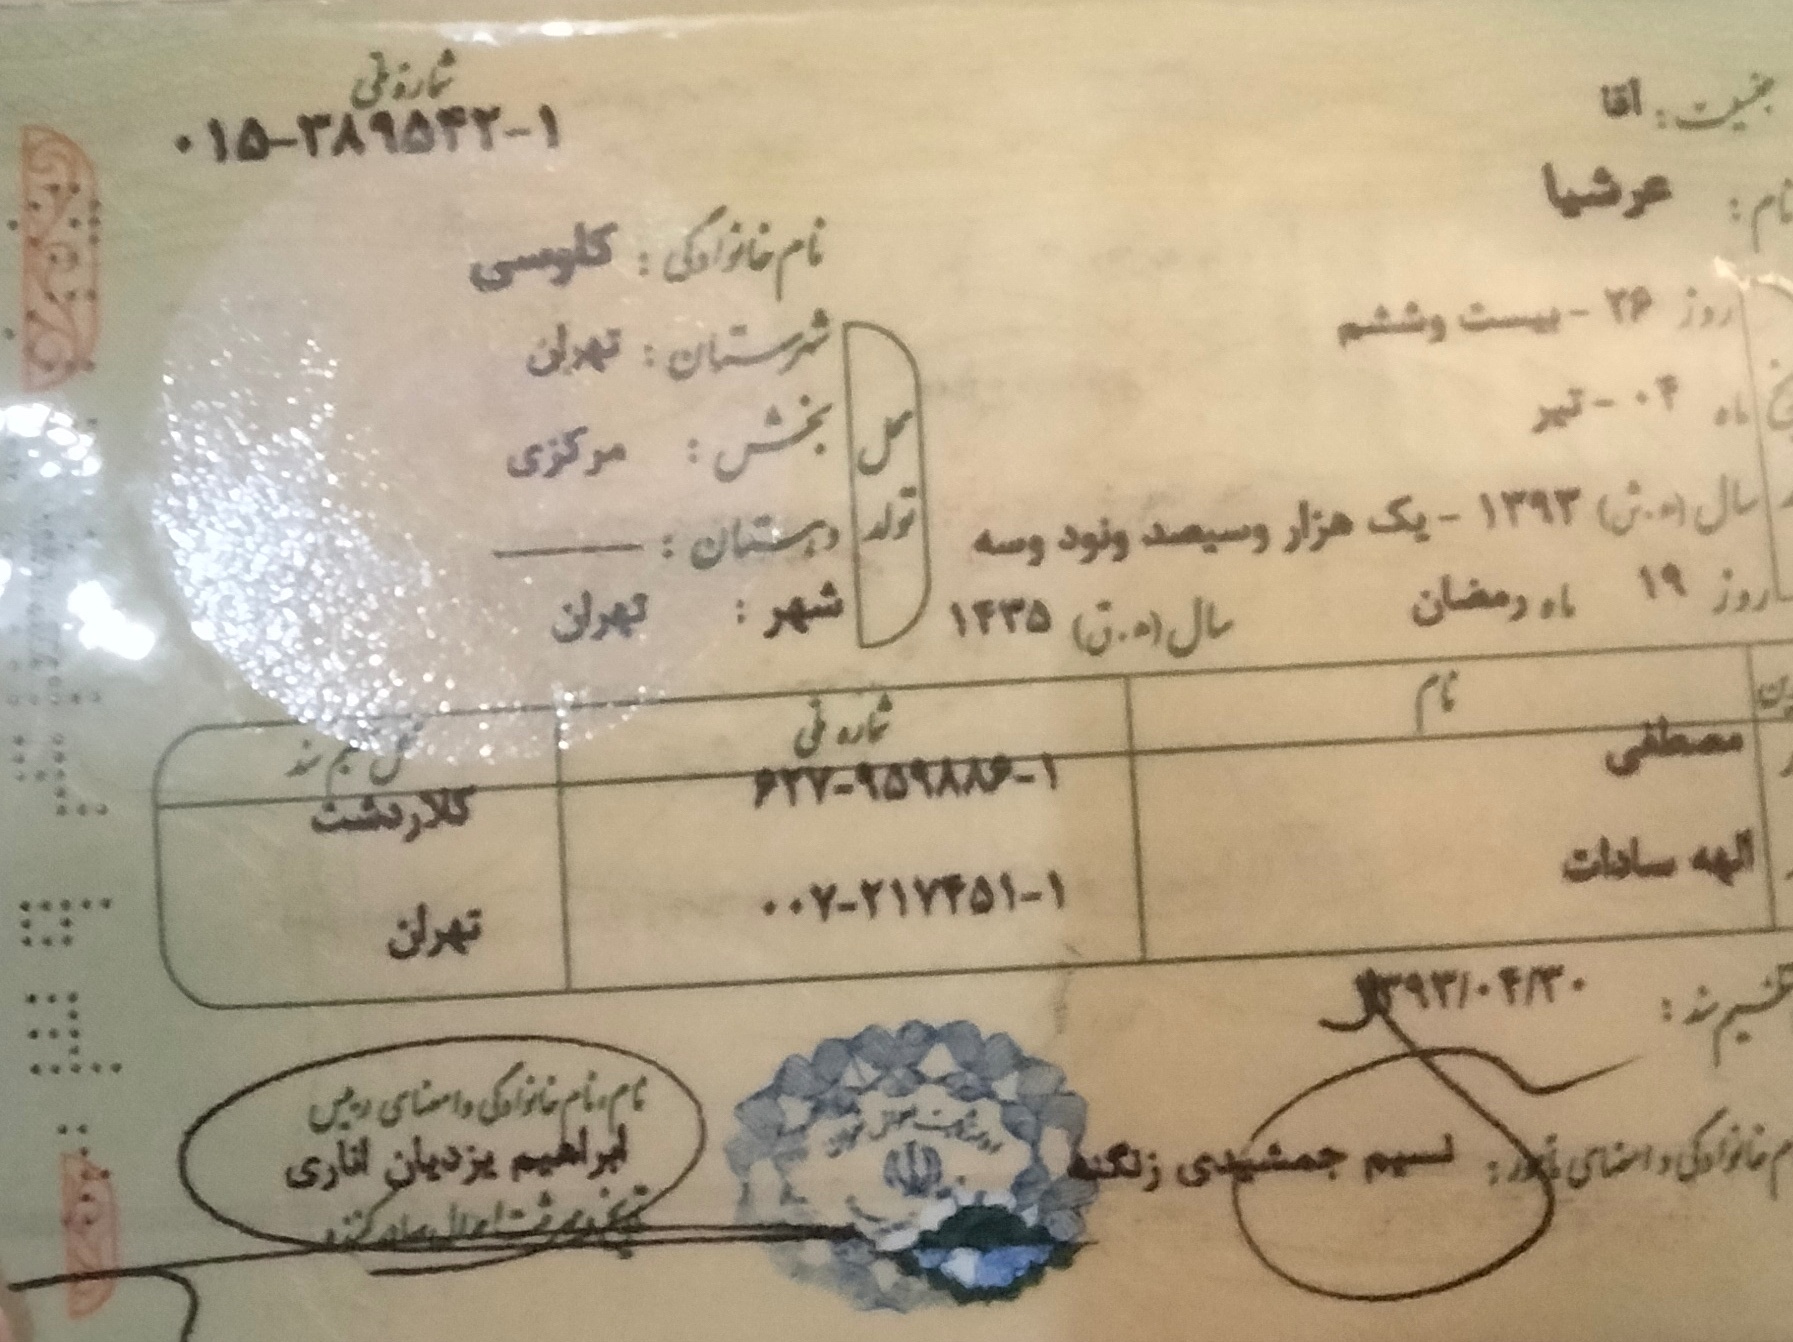 جنسیت: آقا
شماره ملی
۰۱۵-۳۸۹۵۴۲-۱
نام: عرشیا
نام خانوادگی: کلوسی
روز ۲۶ - بیست وششم
ماه ۰۴ - تیر
سال (ه.ش) ۱۳۹۳ - یک هزار وسیصد ونود وسه
روز ۱۹ ماه رمضان سال (ه.ق) ۱۴۳۵
محل تولد
شهرستان: تهران
بخش: مرکزی
دهستان: ———
شهر: تهران
نام شماره ملی محل تنظیم سند
مصطفی ۶۲۷-۹۵۹۸۸۶-۱ کلاردشت
الهه سادات ۰۰۷-۲۱۷۴۵۱-۱ تهران
تنظیم سند: ۱۳۹۳/۰۴/۳۰
نام خانوادگی و امضای مامور: نسیم جمشیدی زنگنه
نام، نام خانوادگی و امضای رییس
ابراهیم یزدیان اناری